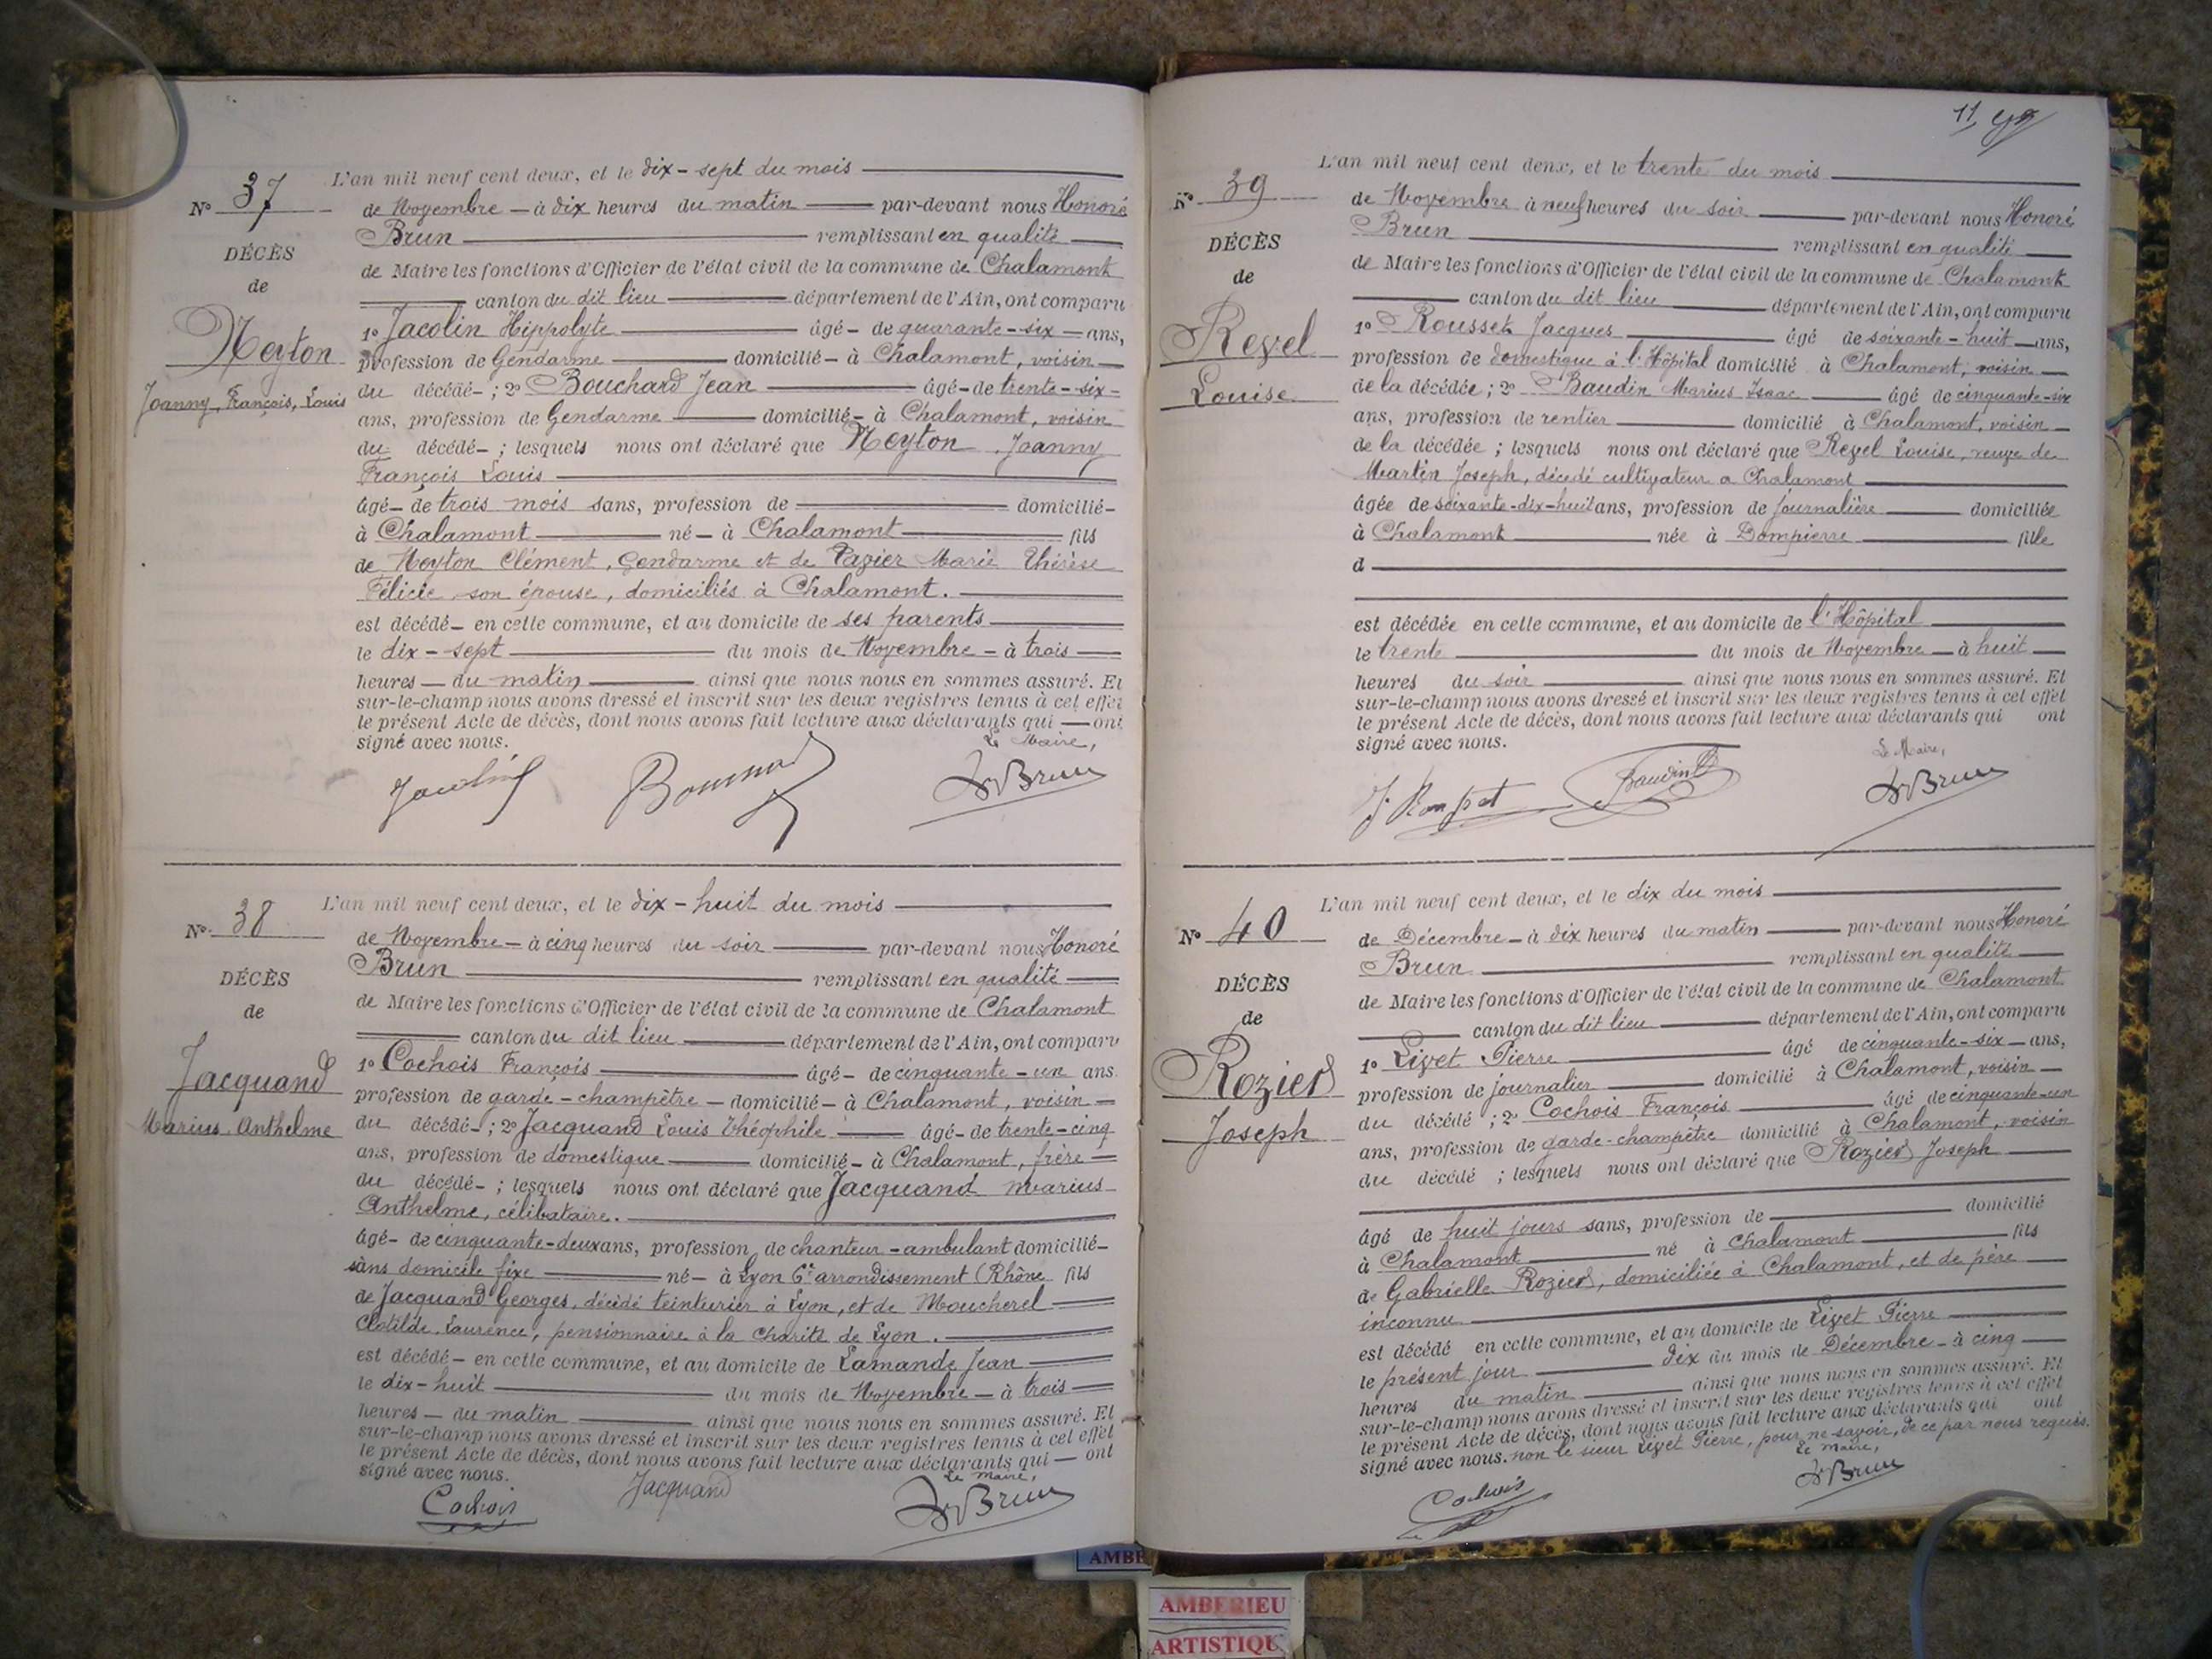 N° 37
DÉCÈS
de
Neyton
Joanny, François, Louis
L'an mil neuf cent deux, et le dix-sept du mois
de Novembre - à dix heures du matin par-devant nous Honoré
Brun remplissant en qualité
de Maire les fonctions d'Officier de l'état civil de la commune de Chalamont
canton du dit lieu département de l'Ain, ont comparu
1° Jacolin Hippolyte âgé - de quarante-six - ans,
profession de Gendarme domicilié - à Chalamont, voisin
du décédé - ; 2° Bouchard Jean âgé - de trente-six -
ans, profession de Gendarme domicilié - à Chalamont, voisin
du décédé - ; lesquels nous ont déclaré que Neyton Joanny
François Louis
âgé - de trois mois sans, profession de domicilié -
à Chalamont né - à Chalamont fils
de Neyton Clément, Gendarme et de Pazier Marie Thérèse
Félicie son épouse, domiciliés à Chalamont.
est décédé - en cette commune, et au domicile de ses parents
le dix-sept du mois de Novembre - à trois
heures - du matin ainsi que nous nous en sommes assuré. Et
sur-le-champ nous avons dressé et inscrit sur les deux registres tenus à cet effet
le présent Acte de décès, dont nous avons fait lecture aux déclarants qui - ont
signé avec nous.
Le Maire,
Jacolin HBrun
N° 38
DÉCÈS
de
Jacquand
Marius Anthelme
L'an mil neuf cent deux, et le dix-huit du mois
de Novembre - à cinq heures du soir par-devant nous Honoré
Brun remplissant en qualité
de Maire les fonctions d'Officier de l'état civil de la commune de Chalamont
canton du dit lieu département de l'Ain, ont comparu
1° Cochois François âgé - de cinquante-un ans.
profession de garde-champêtre - domicilié - à Chalamont, voisin -
du décédé - ; 2° Jacquand Louis Théophile âgé - de trente-cinq
ans, profession de domestique domicilié - à Chalamont, frère
du décédé - ; lesquels nous ont déclaré que Jacquand Marius
Anthelme, célibataire.
âgé - de cinquante-deux ans, profession de chanteur-ambulant domicilié -
sans domicile fixe né - à Lyon 6e arrondissement (Rhône fils
de Jacquand Georges, décédé teinturier à Lyon, et de Moucherel
Clotilde Laurence, pensionnaire à la Charité de Lyon.
est décédé - en cette commune, et au domicile de Lamande Jean
le dix-huit du mois de Novembre - à trois
heures - du matin ainsi que nous nous en sommes assuré. Et
sur-le-champ nous avons dressé et inscrit sur les deux registres tenus à cet effet
le présent Acte de décès, dont nous avons fait lecture aux déclarants qui - ont
signé avec nous.
Le Maire,
Cochois Jacquand HBrun
11
N° 39
DÉCÈS
de
Revel
Louise
L'an mil neuf cent deux, et le trente du mois
de Novembre à neuf heures du soir par-devant nous Honoré
Brun remplissant en qualité
de Maire les fonctions d'Officier de l'état civil de la commune de Chalamont
canton du dit lieu département de l'Ain, ont comparu
1° Rousset Jacques âgé de soixante-huit ans,
profession de domestique à l'Hôpital domicilié à Chalamont, voisin
de la décédée ; 2° Baudin Marius Isaac âgé de cinquante-six
ans, profession de rentier domicilié à Chalamont, voisin
de la décédée ; lesquels nous ont déclaré que Revel Louise, veuve de
Martin Joseph, décédé cultivateur a Chalamont
âgée de soixante-dix-huit ans, profession de journalière domiciliée
à Chalamont née à Dompierre fille
d
est décédée en cette commune, et au domicile de l'Hôpital
le trente du mois de Novembre - à huit
heures du soir ainsi que nous nous en sommes assuré. Et
sur-le-champ nous avons dressé et inscrit sur les deux registres tenus à cet effet
le présent Acte de décès, dont nous avons fait lecture aux déclarants qui ont
signé avec nous.
Le Maire,
J. Rousset Baudin HBrun
N° 40
DÉCÈS
de
Rozier
Joseph
L'an mil neuf cent deux, et le dix du mois
de Décembre - à dix heures du matin par-devant nous Honoré
Brun remplissant en qualité
de Maire les fonctions d'Officier de l'état civil de la commune de Chalamont
canton du dit lieu département de l'Ain, ont comparu
1° Livet Pierre âgé de cinquante-six - ans,
profession de journalier domicilié à Chalamont, voisin
du décédé ; 2° Cochois François âgé de cinquante-un
ans, profession de garde-champêtre domicilié à Chalamont, voisin
du décédé ; lesquels nous ont déclaré que Rozier Joseph
âgé de huit jours sans, profession de domicilié
à Chalamont né à Chalamont fils
de Gabrielle Rozier, domiciliée à Chalamont, et de père
inconnu
est décédé en cette commune, et au domicile de Livet Pierre
le présent jour dix du mois de Décembre - à cinq
heures du matin ainsi que nous nous en sommes assuré. Et
sur-le-champ nous avons dressé et inscrit sur les deux registres tenus à cet effet
le présent Acte de décès, dont nous avons fait lecture aux déclarants qui ont
signé avec nous. non le sieur Livet Pierre, pour ne savoir, de ce par nous requis.
Le Maire,
Cochois HBrun
AMBE
AMBERIEU
ARTISTIQU